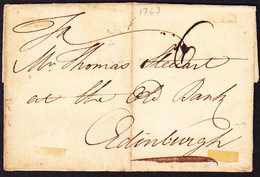 1767
6
To
Mr. Thomas Stewart
at the Old Bank
Edinburgh